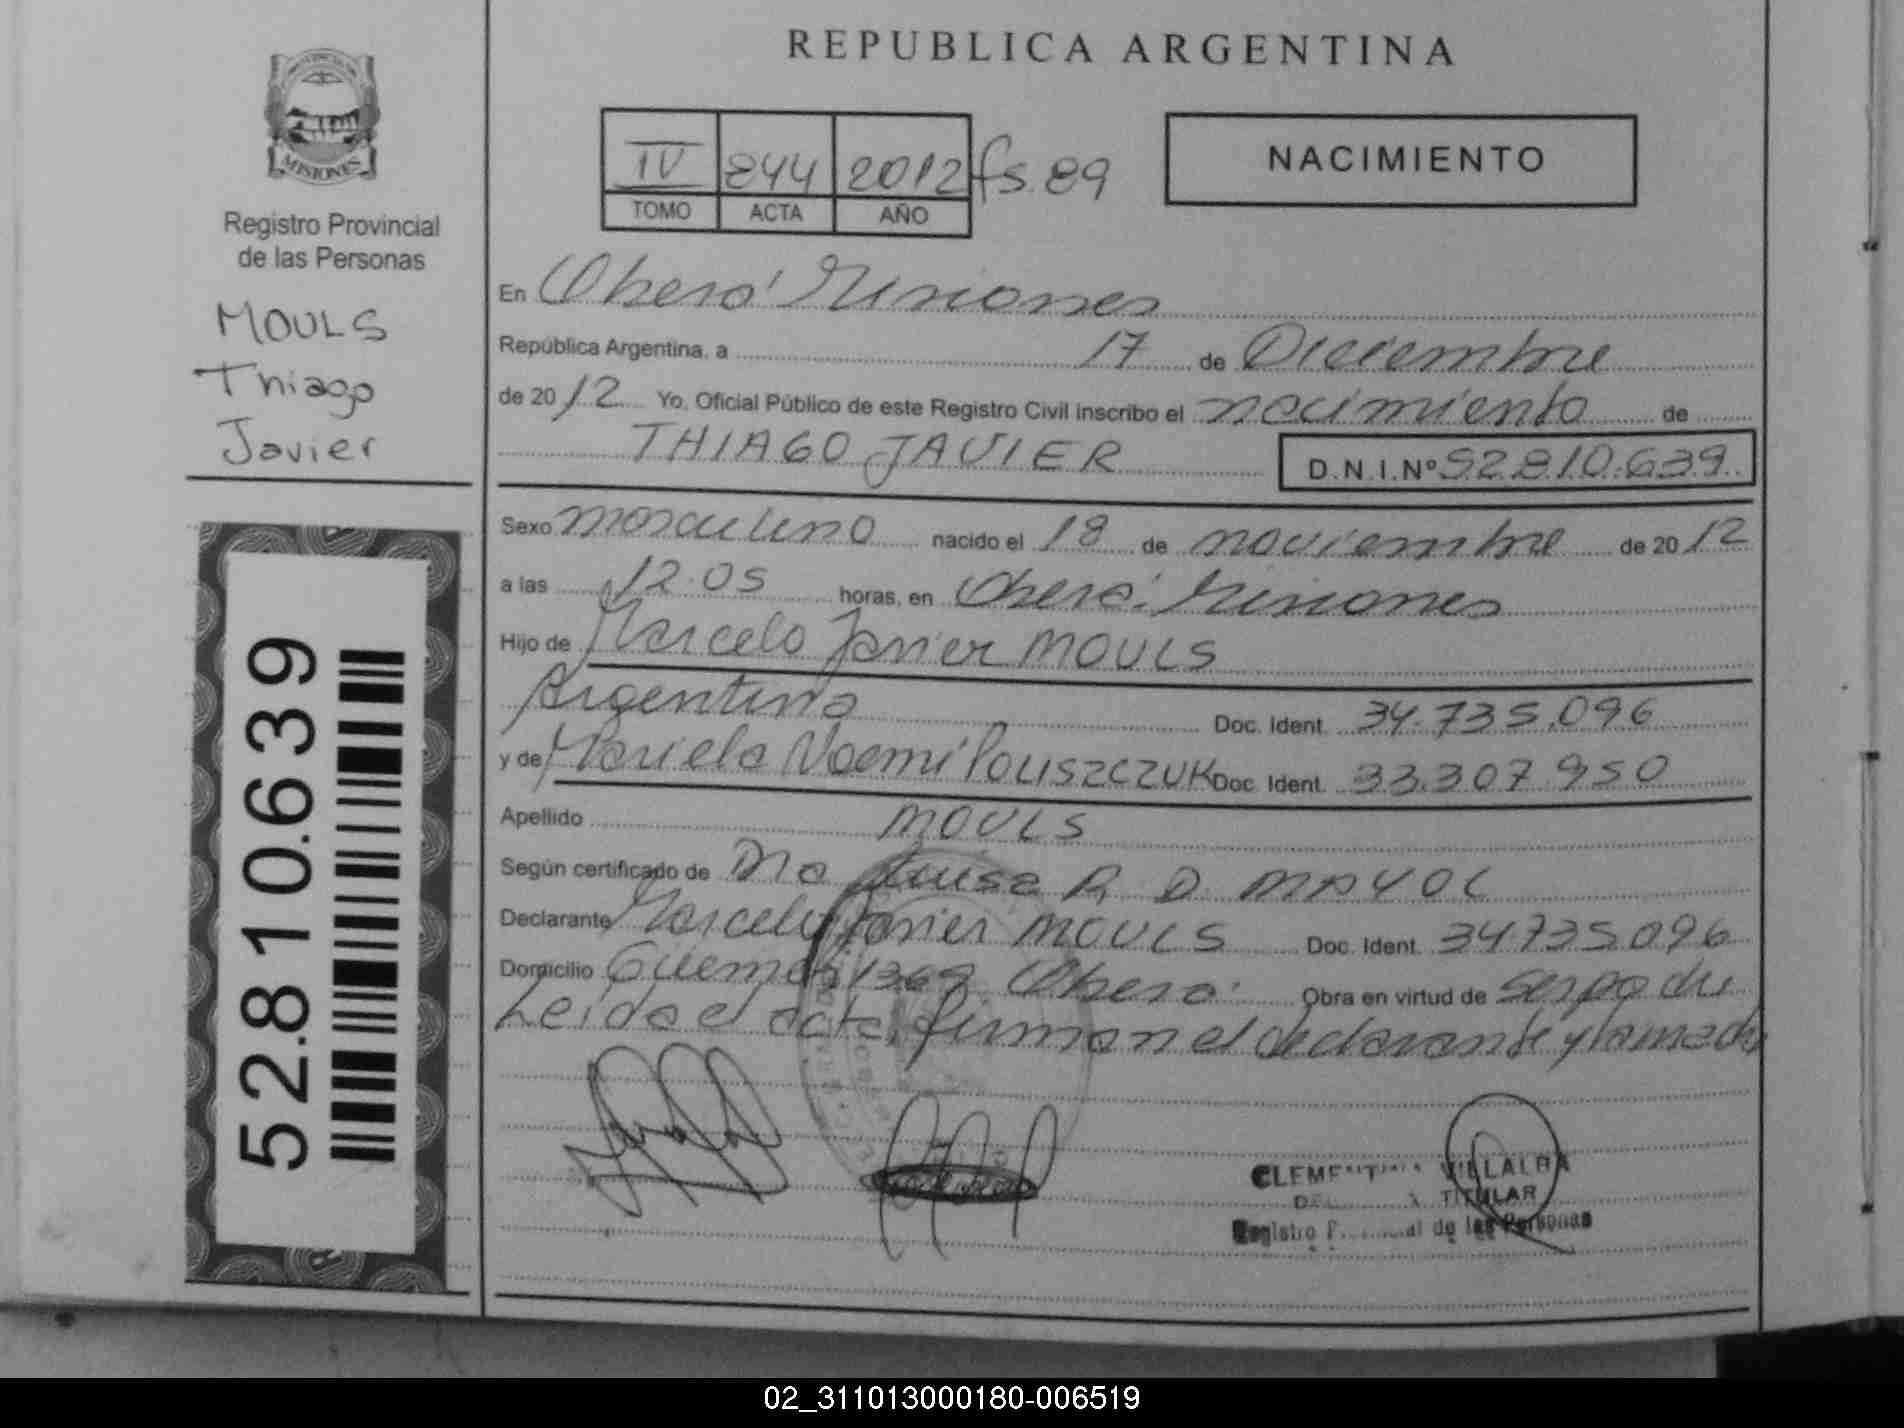 REPUBLICA ARGENTINA
MISIONES
Registro Provincial
de las Personas
MOULS
Thiago
Javier
52.810.639
IV 844 2012 fs. 89
TOMO ACTA AÑO
NACIMIENTO
En Oberá Misiones
República Argentina, a 17 de Diciembre
de 2012 Yo, Oficial Público de este Registro Civil inscribo el nacimiento de
THIAGO JAVIER D.N.I.Nº 52.810.639
Sexo masculino nacido el 18 de noviembre de 2012
a las 12.05 horas, en Oberá. Misiones
Hijo de Marcelo Javier MOULS
Argentino Doc. Ident. 34.735.096
y de Mariela Noemí POLISZCZUK Doc. Ident. 33.307.950
Apellido MOULS
Según certificado de Dra Luisa R. D. MAYOL
Declarante Marcelo Javier MOULS Doc. Ident. 34735096
Domicilio Güemes 1369 Oberá Obra en virtud de ser padre
Leída el acta, firman el declarante y la madre
VILLALBA
TITULAR
Registro de las Personas
02_311013000180-006519